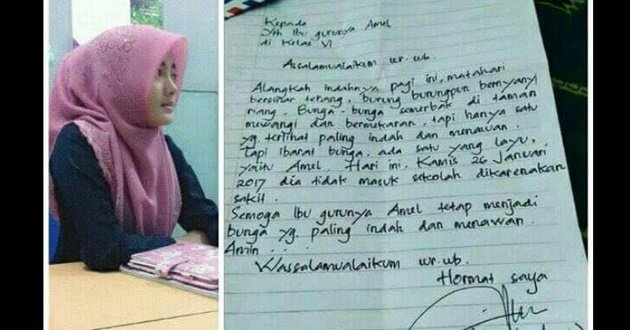 Kepada
Yth Ibu gurunya Amel
di Kelas VI
Assalamualaikum wr. wb.
Alangkah indahnya pagi ini, matahari
bersinar terang, burung burungpun bernyanyi
riang. Bunga-bunga semerbak di taman
mewangi dan bermekaran. tapi hanya satu
yg terlihat paling indah dan menawan.
Tapi ibarat bunga, ada satu yang layu,
yaitu Amel. Hari ini, Kamis 26 Januari
2017 dia tidak masuk sekolah dikarenakan
sakit.
Semoga Ibu gurunya Amel tetap menjadi
bunga yg paling indah dan menawan.
Amin...
Wassalamualaikum wr. wb.
Hormat saya